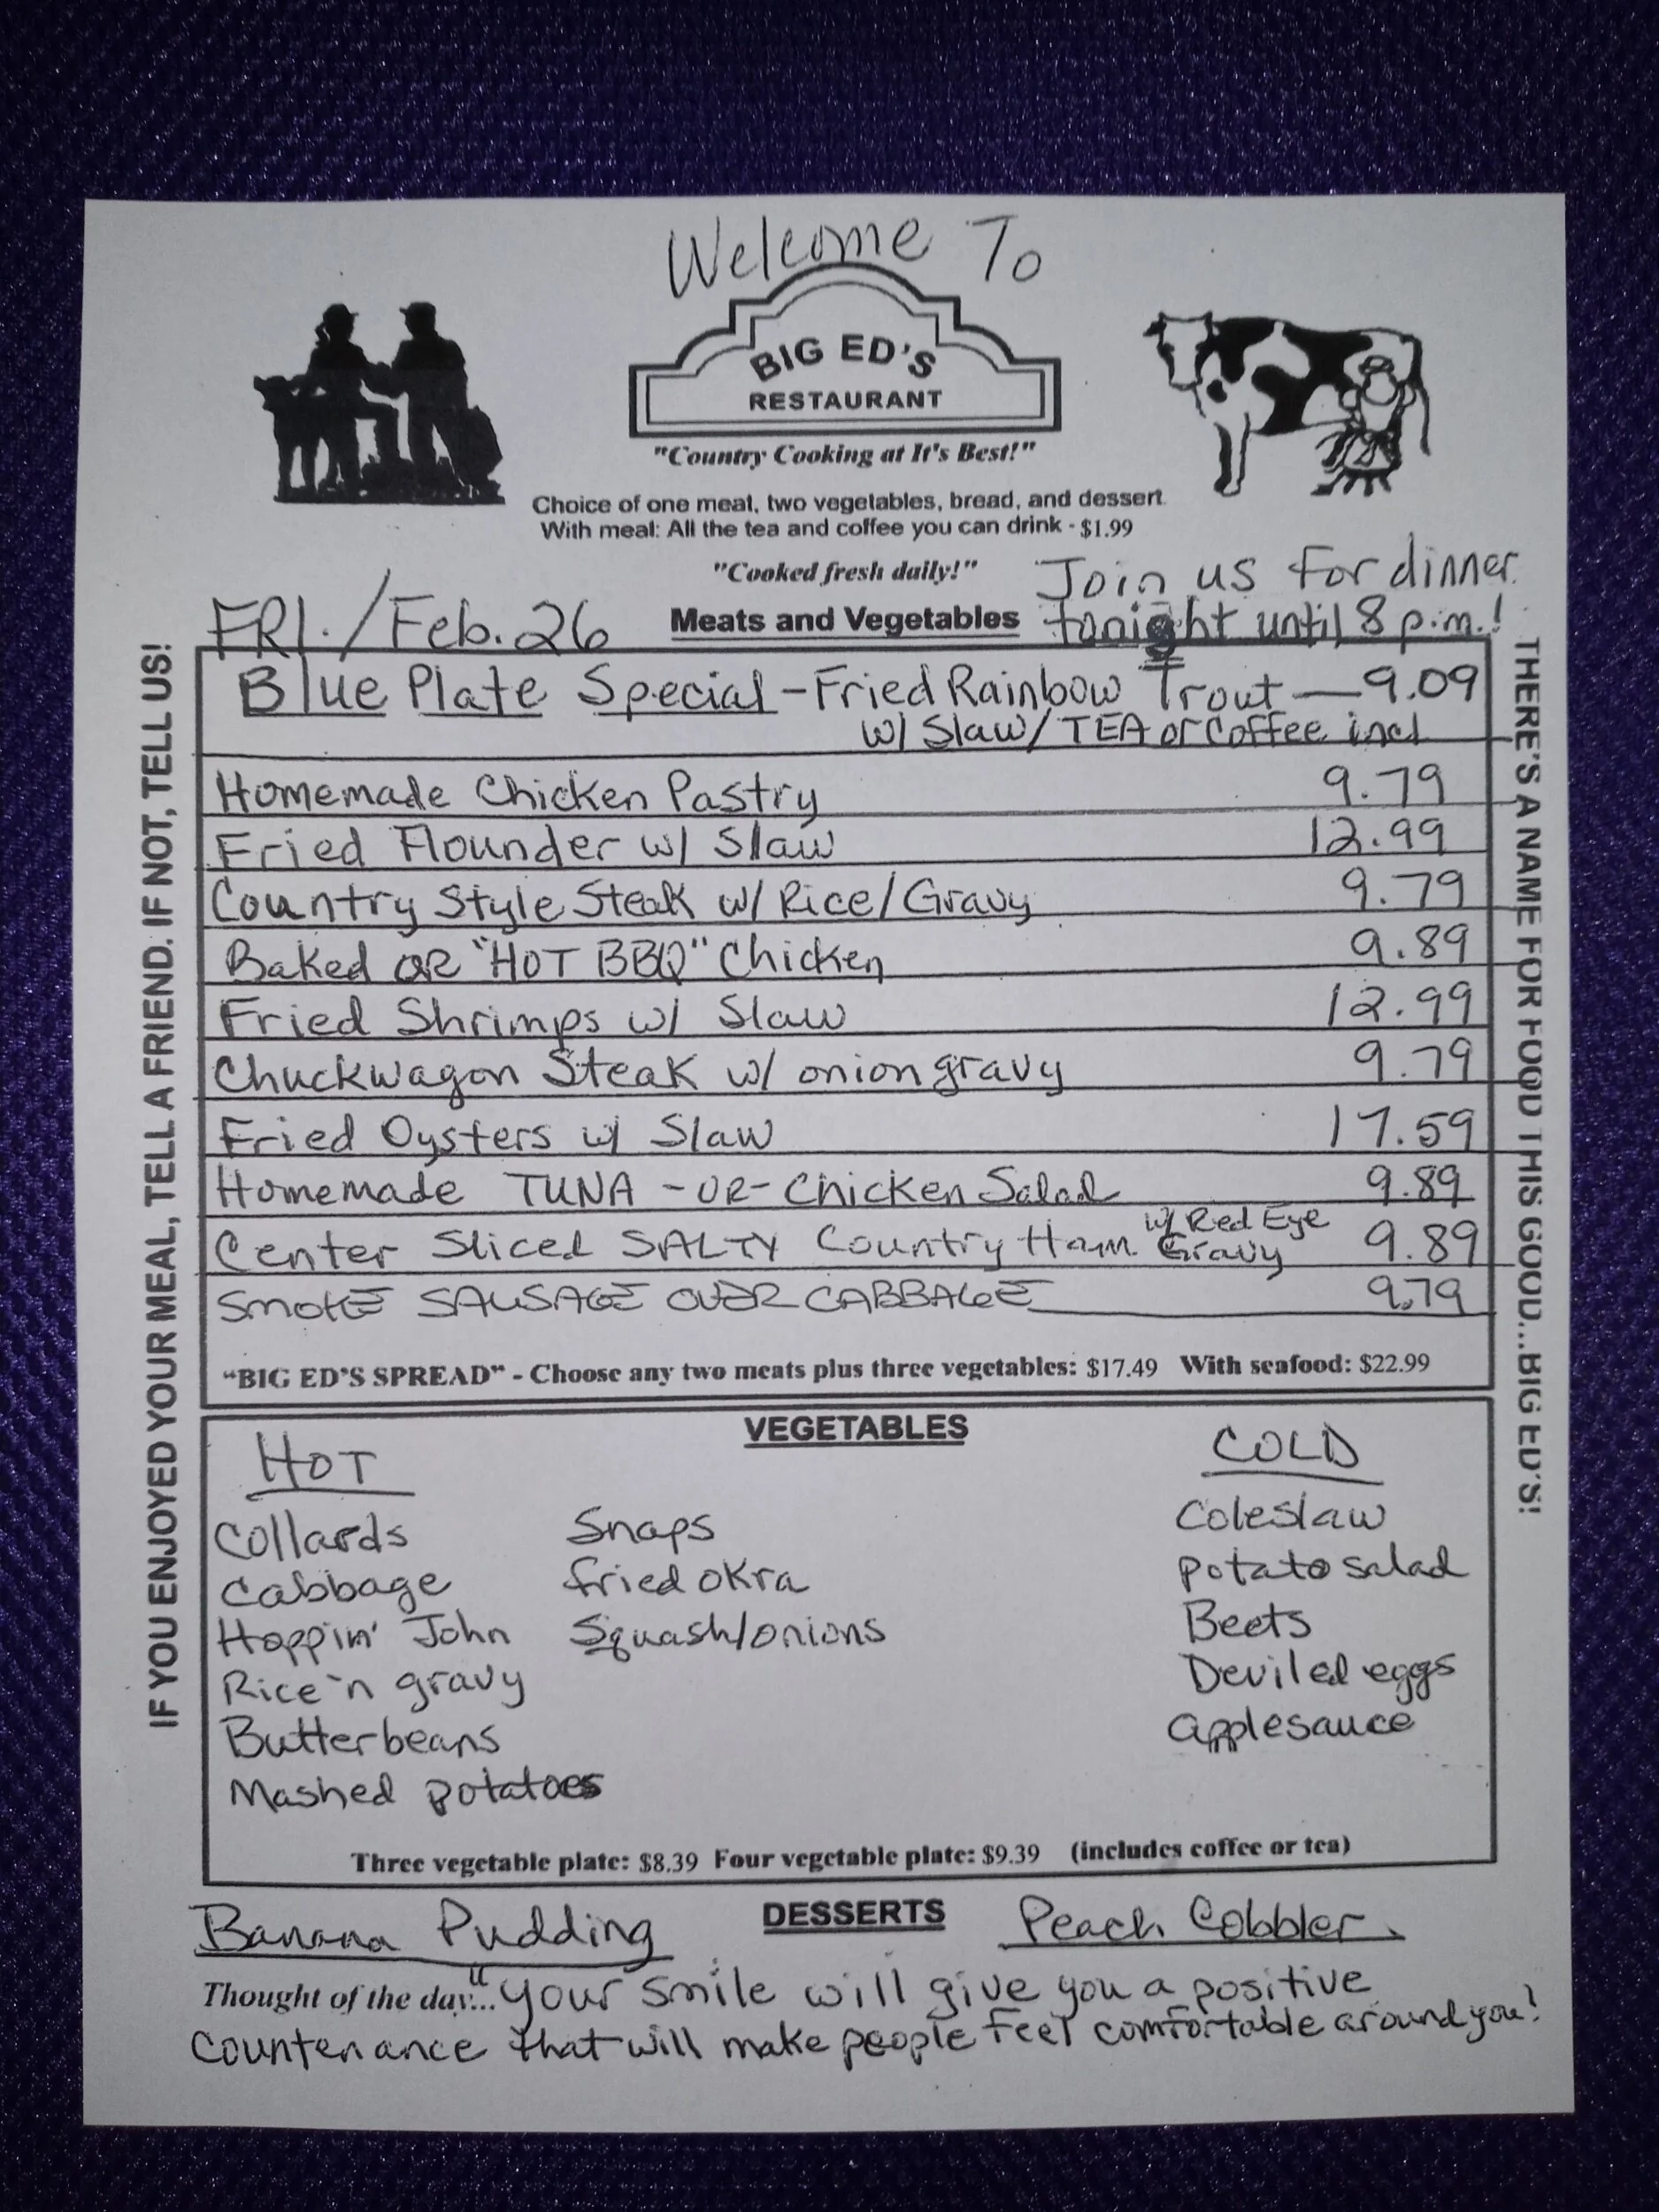 Welcome To
BIG ED'S
RESTAURANT
"Country Cooking at It's Best!"
Choice of one meat, two vegetables, bread, and dessert.
With meal: All the tea and coffee you can drink - $1.99
"Cooked fresh daily!"
Join us for dinner
tonight until 8 p.m.!
FRI./Feb. 26
Meats and Vegetables
Blue Plate Special - Fried Rainbow Trout — 9.09
w/ Slaw/TEA or Coffee incl
Homemade Chicken Pastry 9.79
Fried Flounder w/ Slaw 12.99
Country Style Steak w/ Rice/Gravy 9.79
Baked OR "HOT BBQ" Chicken 9.89
Fried Shrimps w/ Slaw 12.99
Chuckwagon Steak w/ onion gravy 9.79
Fried Oysters w/ Slaw 17.59
Homemade TUNA -OR- Chicken Salad 9.89
Center Sliced SALTY Country Ham w/ Red Eye Gravy 9.89
SMOKE SAUSAGE OVER CABBAGE 9.79
"BIG ED'S SPREAD" - Choose any two meats plus three vegetables: $17.49 With seafood: $22.99
IF YOU ENJOYED YOUR MEAL, TELL A FRIEND. IF NOT, TELL US!
THERE'S A NAME FOR FOOD THIS GOOD...BIG ED'S!
VEGETABLES
HOT
Collards
Cabbage
Hoppin' John
Rice 'n gravy
Butterbeans
Mashed potatoes
Snaps
fried okra
Squash/onions
COLD
Coleslaw
potato salad
Beets
Deviled eggs
applesauce
Three vegetable plate: $8.39 Four vegetable plate: $9.39 (includes coffee or tea)
DESSERTS
Banana Pudding
Peach Cobbler
Thought of the day... "Your smile will give you a positive
countenance that will make people feel comfortable around you!